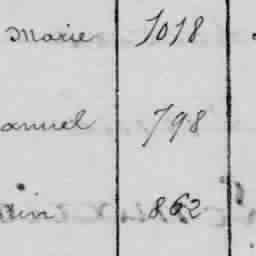 Marie 1018
anuel 798
862